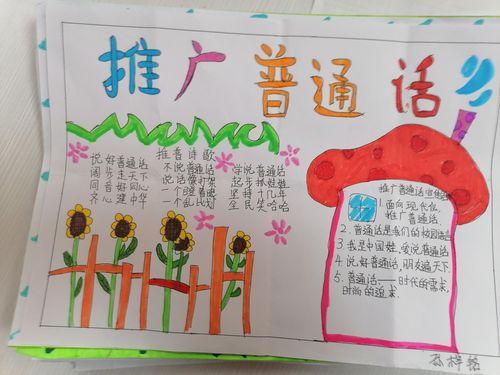 推广普通话
说好普通话
阔步走天下
同音好同心
齐心建中华
推普诗歌
不说普通话
说话像打架
一个瞪着眼
一个乱比划
学说普通
起步抓娃娃
坚持十几年
全民笑哈哈
推广普通话宣传语
1.面向现代化,
推广普通话
2.普通话是我们的校园语言
3.我是中国娃,爱说普通话
4.说好普通话,朋友遍天下.
5.普通话——时代的需求,
时尚的追求.